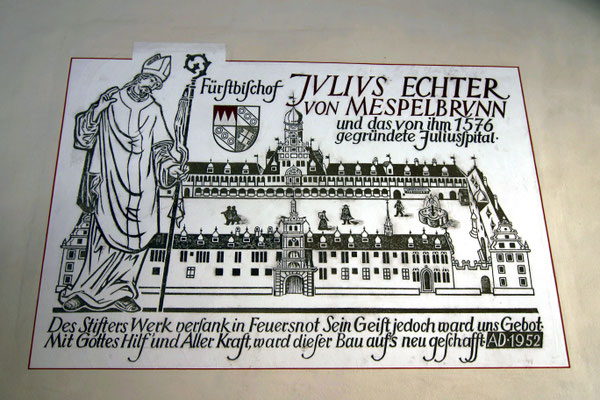 Fürstbischof JVLIVS ECHTER
VON MESPELBRVNN
und das von ihm 1576
gegründete Juliusspital·
Des Stifters Werk versank in Feuersnot Sein Geist jedoch ward uns Gebot·
Mit Gottes Hilf und Aller Kraft, ward dieser Bau aufs neu geschafft· AD·1952